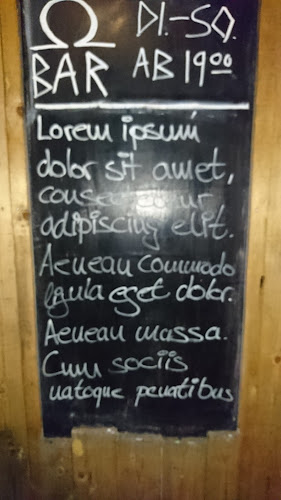 Ω DI.-SO.
BAR AB 19⁰⁰
Lorem ipsum
dolor sit amet,
adipiscing elit.
Aenean commodo
ligula eget dolor.
Aenean massa.
Cum sociis
natoque penatibus